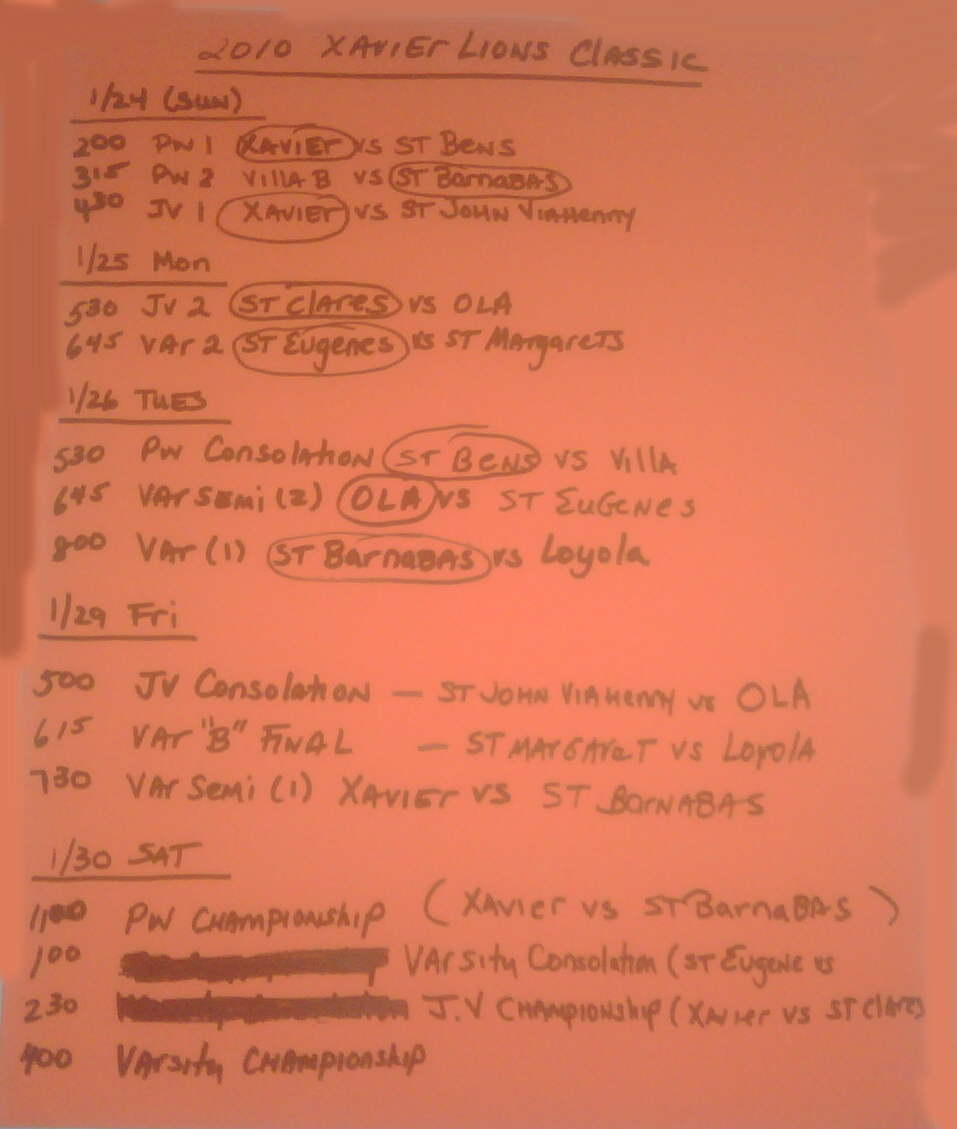 2010 XAVIER LIONS CLASSIC
1/24 (SUN)
200 PW 1 XAVIER VS ST BENS
315 PW 2 VILLA B VS ST BarnaBAS
430 JV 1 XAVIER VS ST JOHN VIAHENNY
1/25 Mon
530 JV 2 ST ClAres VS OLA
645 VAr 2 ST Eugenes VS ST MArgareTS
1/26 TUES
530 PW Consolation ST BENS VS VillA
645 VAr SEMI (2) OLA VS ST EuGENES
800 VAr (1) ST BarnaBAS VS Loyola
1/29 Fri
500 JV Consolation — ST JOHN VIAHENNY vs OLA
615 VAr "B" FINAL — ST MArGAreT VS LoyolA
730 VAr Semi (1) XAVIEr VS ST BArNABAS
1/30 SAT
1100 PW CHAMPIONSHIP (XAVier vs ST BarnaBAS)
100 VArsity Consolation (ST EugeNe vs
230 J.V CHAMPIONSHIP (XAVier VS ST ClAreS
400 VArsity CHAMPIONSHIP